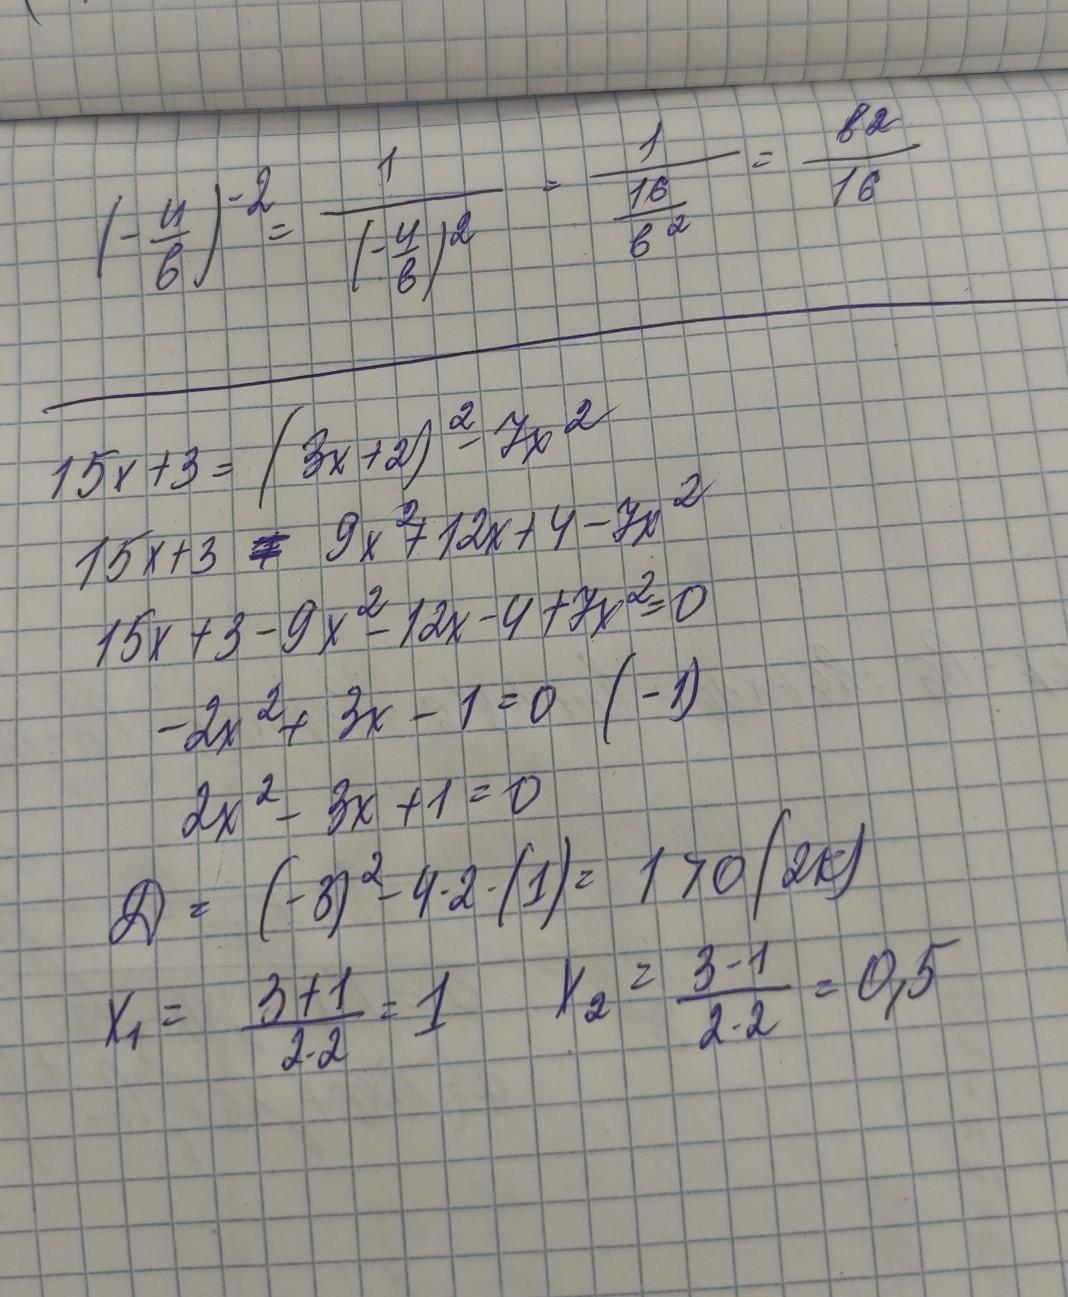 (-4/в)^-2 = 1/(-4/в)^2 = 1/(16/в^2) = в2/16
15x+3 = (3x+2)^2 - 7x^2
15x+3 = 9x^2+12x+4-7x^2
15x+3-9x^2-12x-4+7x^2=0
-2x^2+3x-1=0 (-1)
2x^2-3x+1=0
D = (-3)^2-4·2·(1)= 1>0 (2к)
x₁ = (3+1)/(2·2) = 1 x₂ = (3-1)/(2·2) = 0,5